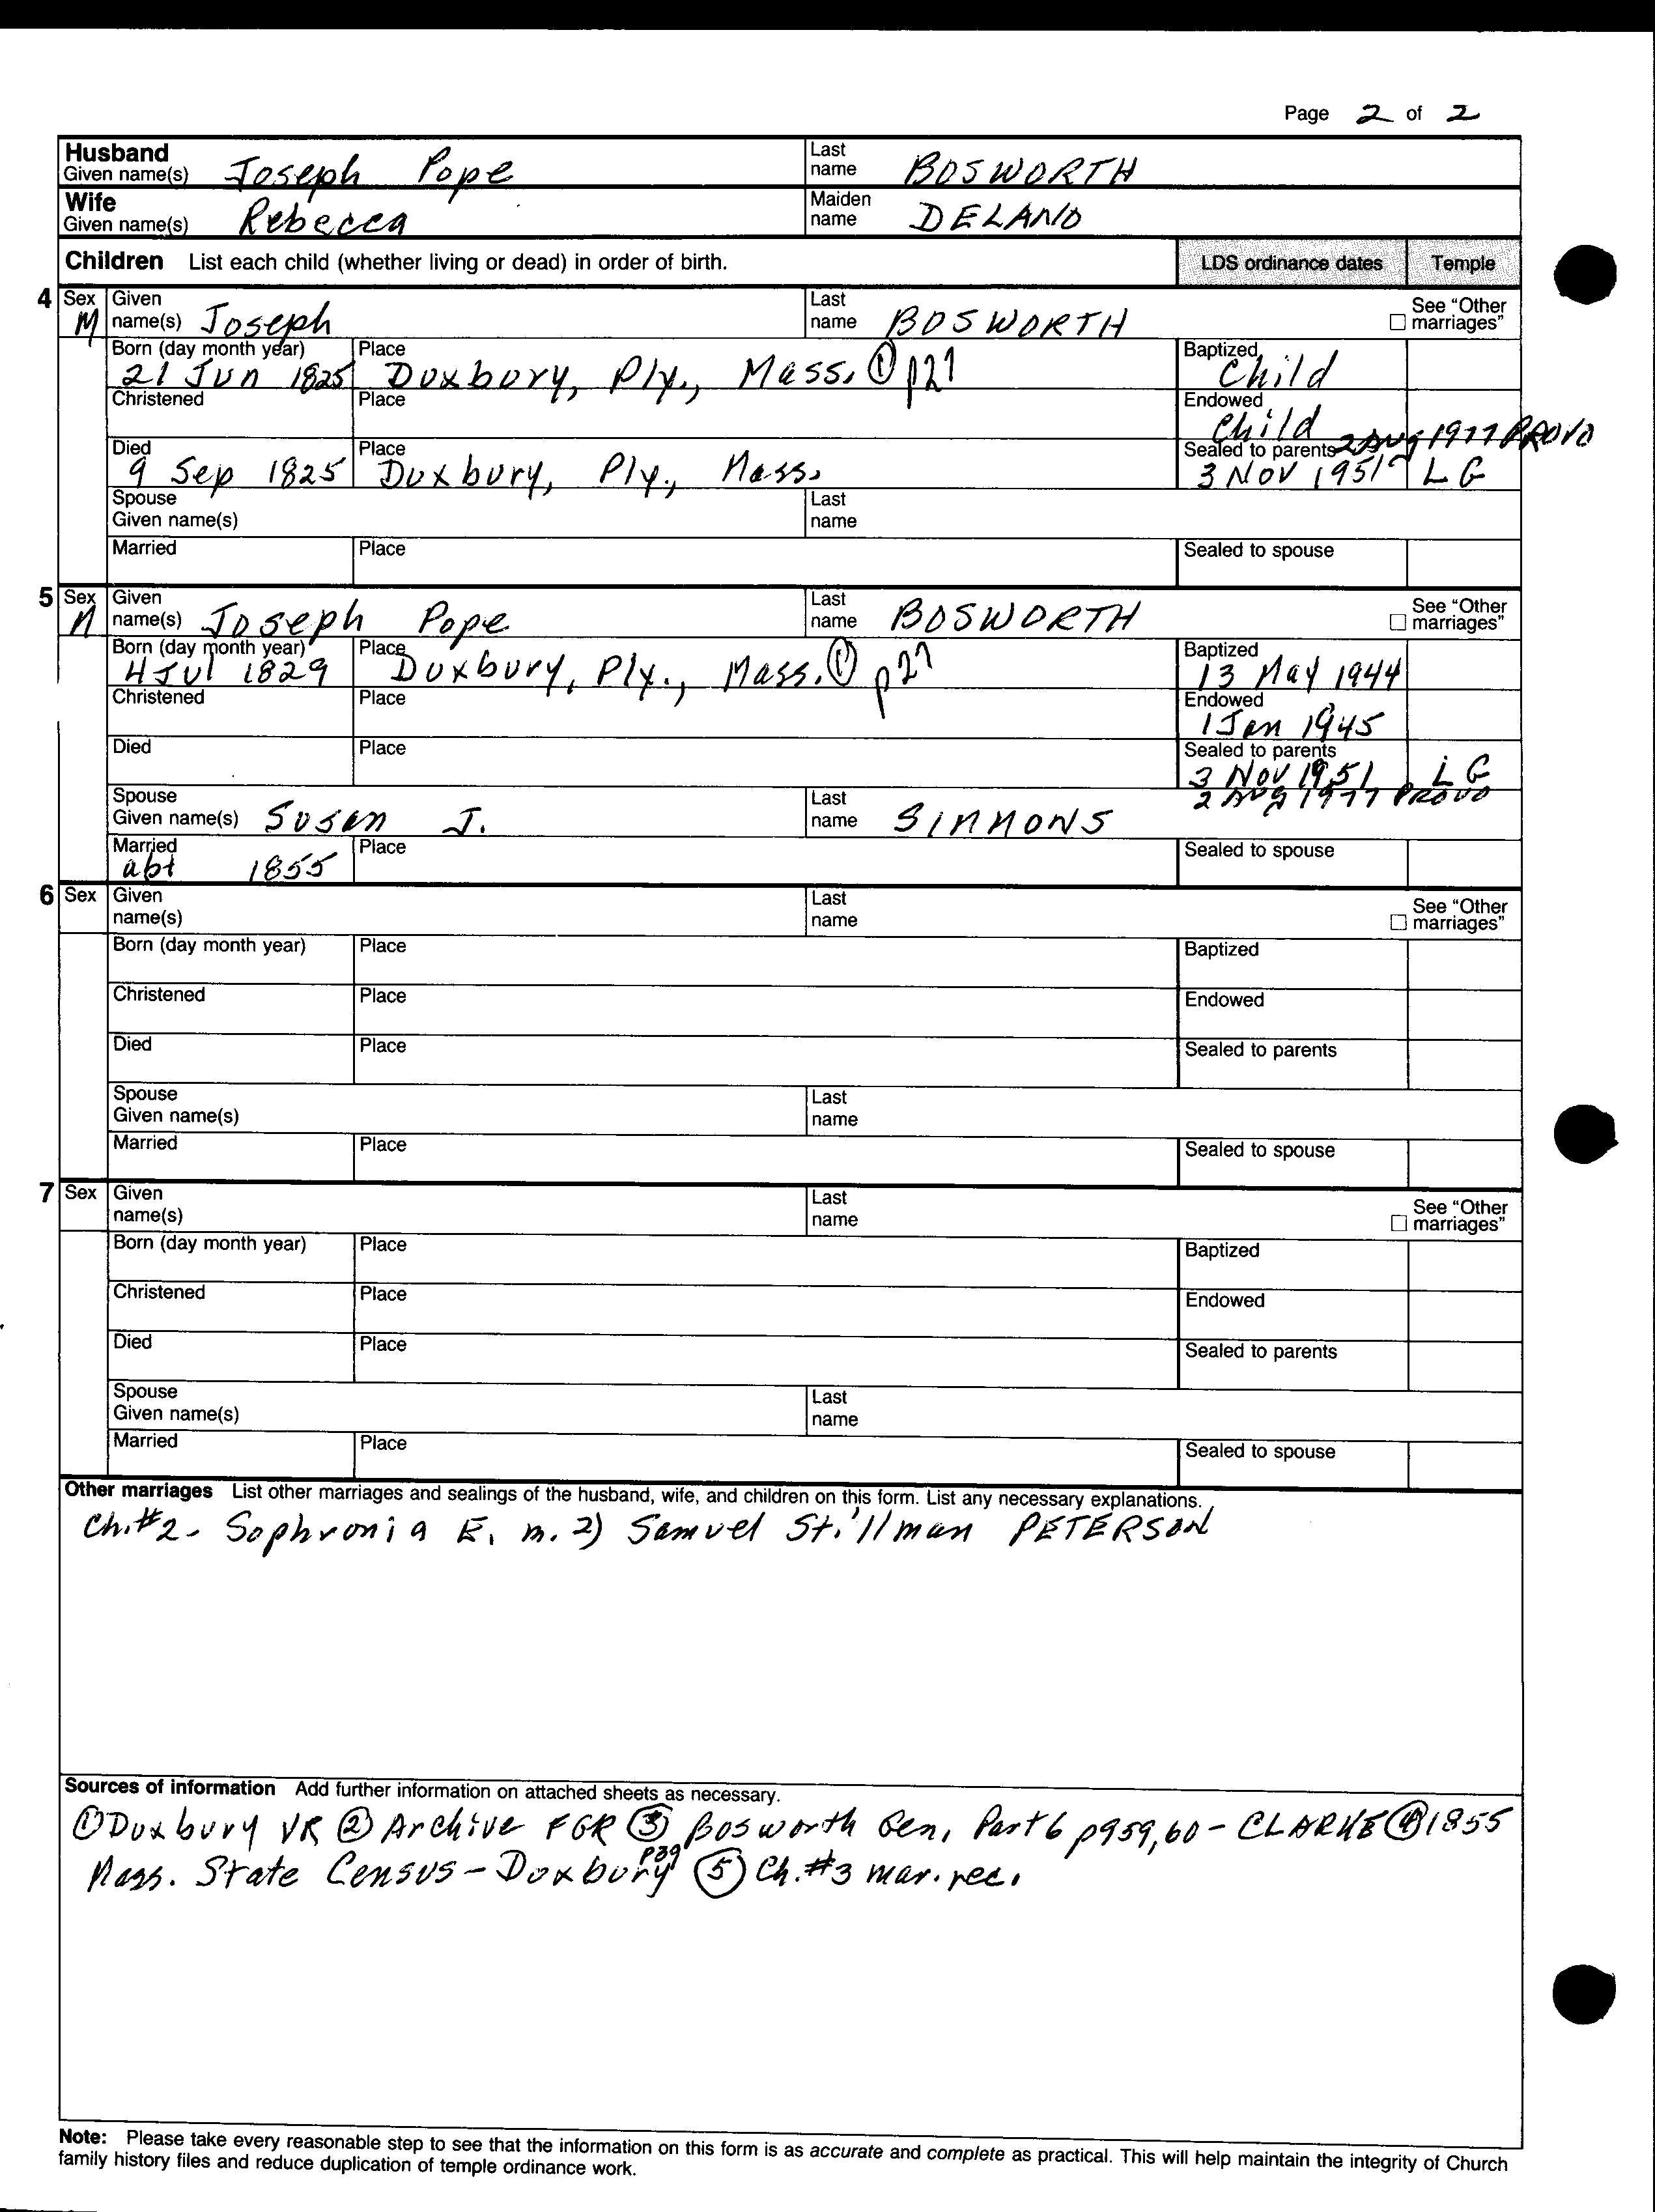 Page 2 of 2
Husband Given name(s) Joseph Pope Last name BOSWORTH
Wife Given name(s) Rebecca Maiden name DELANO
Children List each child (whether living or dead) in order of birth. LDS ordinance dates Temple
4 Sex M Given name(s) Joseph Last name BOSWORTH See "Other marriages"
Born (day month year) 21 Jun 1825 Place Duxbury, Ply., Mass. ① p27 Baptized Child
Christened Place Endowed Child
2 Aug 1977 PROVO
Died 9 Sep 1825 Place Duxbury, Ply., Mass. Sealed to parents 3 Nov 1951 LG
Spouse Given name(s) Last name
Married Place Sealed to spouse
5 Sex M Given name(s) Joseph Pope Last name BOSWORTH See "Other marriages"
Born (day month year) 4 Jul 1829 Place Duxbury, Ply., Mass. ① p27 Baptized 13 May 1944
Christened Place Endowed 1 Jan 1945
Died Place Sealed to parents 3 Nov 1951 LG
2 Aug 1977 PROVO
Spouse Given name(s) Susan J. Last name SIMMONS
Married abt 1855 Place Sealed to spouse
6 Sex Given name(s) Last name See "Other marriages"
Born (day month year) Place Baptized
Christened Place Endowed
Died Place Sealed to parents
Spouse Given name(s) Last name
Married Place Sealed to spouse
7 Sex Given name(s) Last name See "Other marriages"
Born (day month year) Place Baptized
Christened Place Endowed
Died Place Sealed to parents
Spouse Given name(s) Last name
Married Place Sealed to spouse
Other marriages List other marriages and sealings of the husband, wife, and children on this form. List any necessary explanations.
Ch.#2- Sophronia E. m. 2) Samuel Stillman PETERSON
Sources of information Add further information on attached sheets as necessary.
① Duxbury VR ② Archive FGR ③ Bosworth Gen. Part 6 p959,60 - CLARKE ④ 1855
Mass. State Census - Duxbury p39 ⑤ Ch.#3 mar. rec.
Note: Please take every reasonable step to see that the information on this form is as accurate and complete as practical. This will help maintain the integrity of Church
family history files and reduce duplication of temple ordinance work.